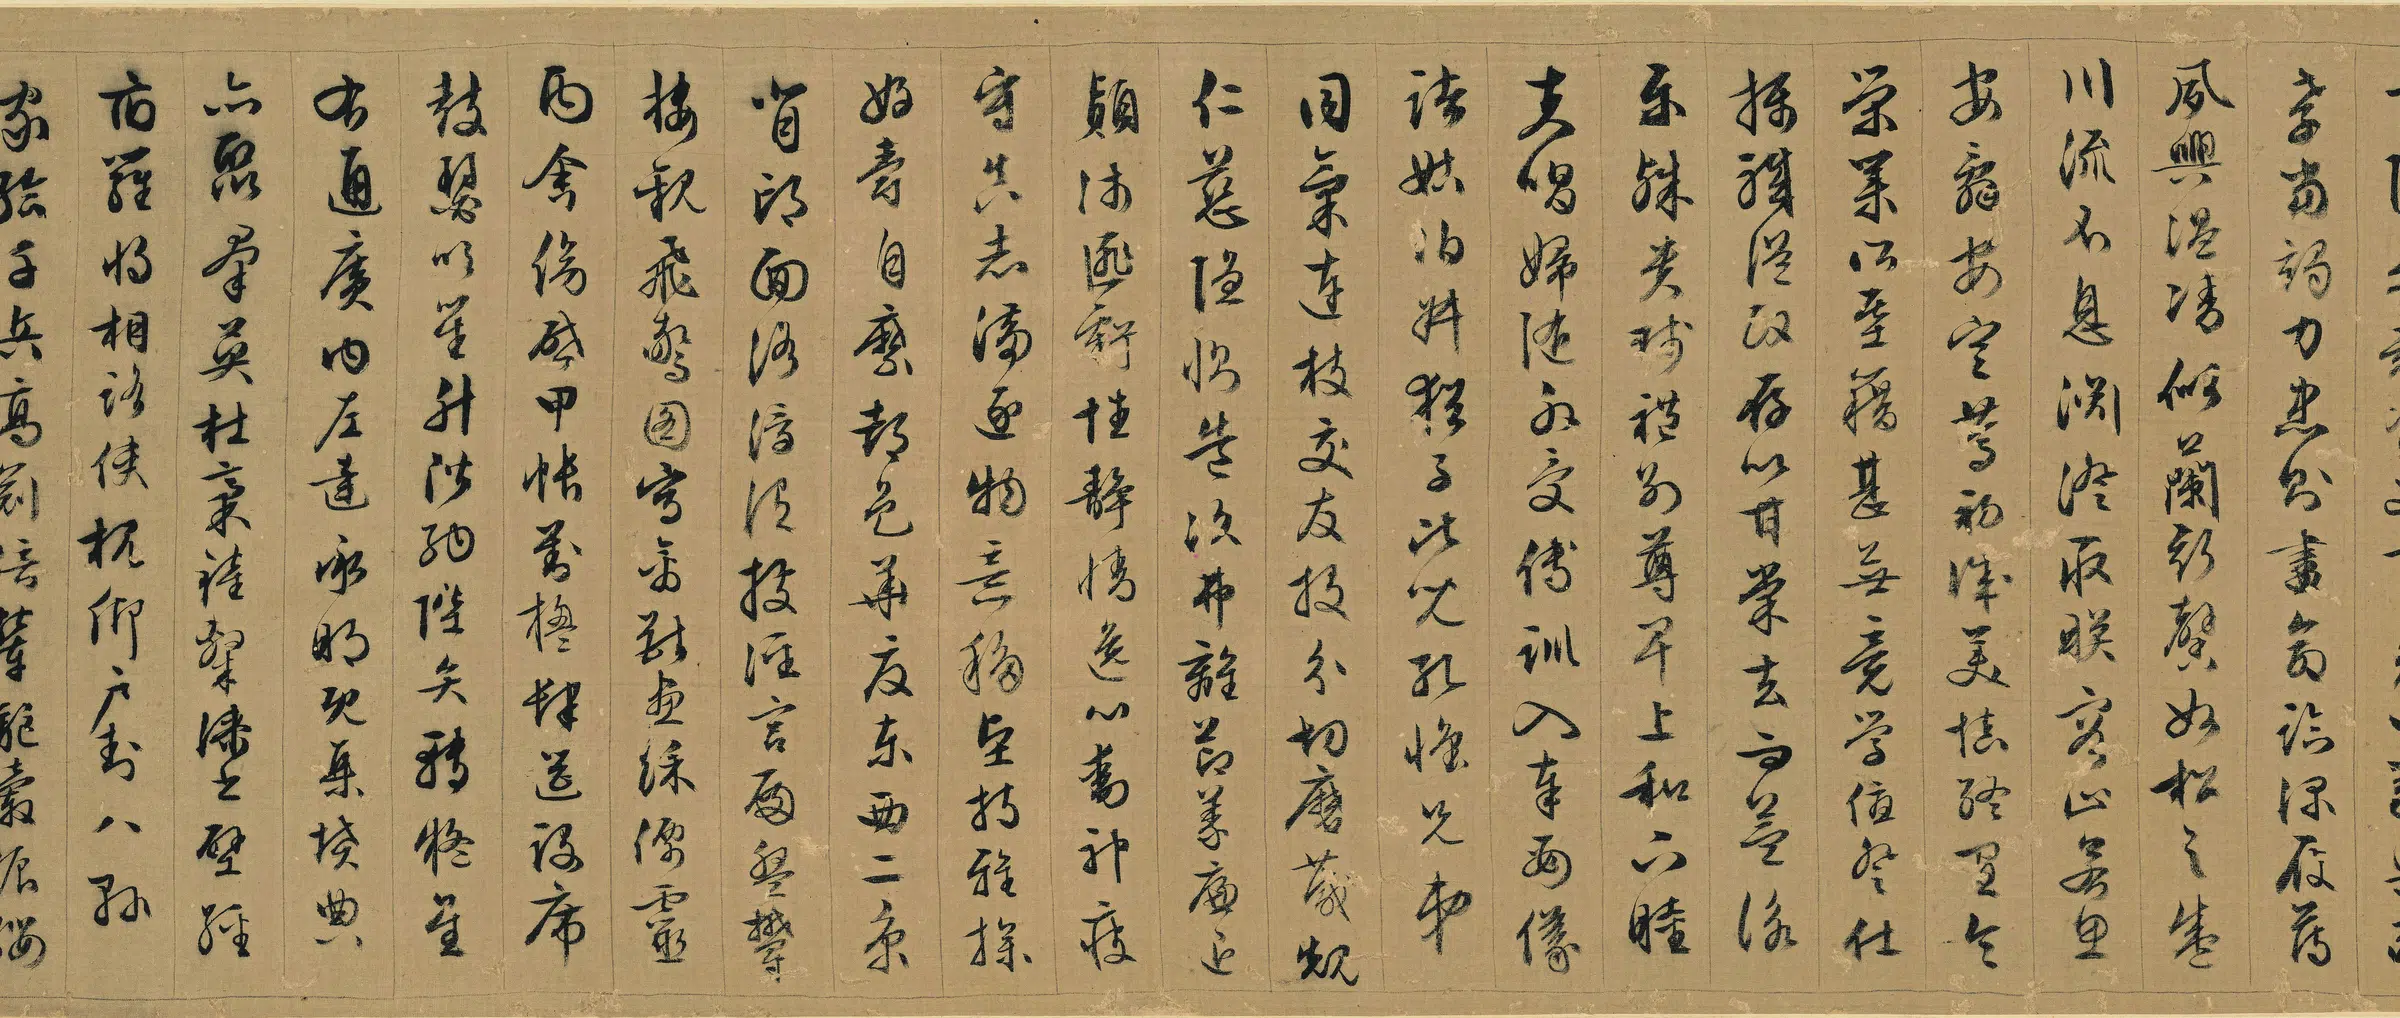 孝當竭力忠則盡命臨深履薄
夙興溫凊似蘭斯馨如松之盛
川流不息淵澄取映容止若思
安辭安定篤初誠美慎終宜令
榮業所基籍甚無竟學優登仕
攝職從政存以甘棠去而益詠
樂殊貴賤禮別尊卑上和下睦
夫唱婦隨外受傅訓入奉母儀
諸姑伯叔猶子比兒孔懷兄弟
同氣連枝交友投分切磨箴規
仁慈隱惻造次弗離節義廉退
顛沛匪虧性靜情逸心動神疲
守真志滿逐物意移堅持雅操
好爵自縻都邑華夏東西二京
背邙面洛浮渭據涇宮殿盤鬱
樓觀飛驚圖寫禽獸畫綵僊靈
丙舍傍啟甲帳對楹肆筵設席
鼓瑟吹笙升階納陛弁轉疑星
右通廣內左達承明既集墳典
亦聚群英杜稾鍾隸漆書壁經
府羅將相路俠槐卿戶封八縣
家給千兵高冠陪輦驅轂振纓